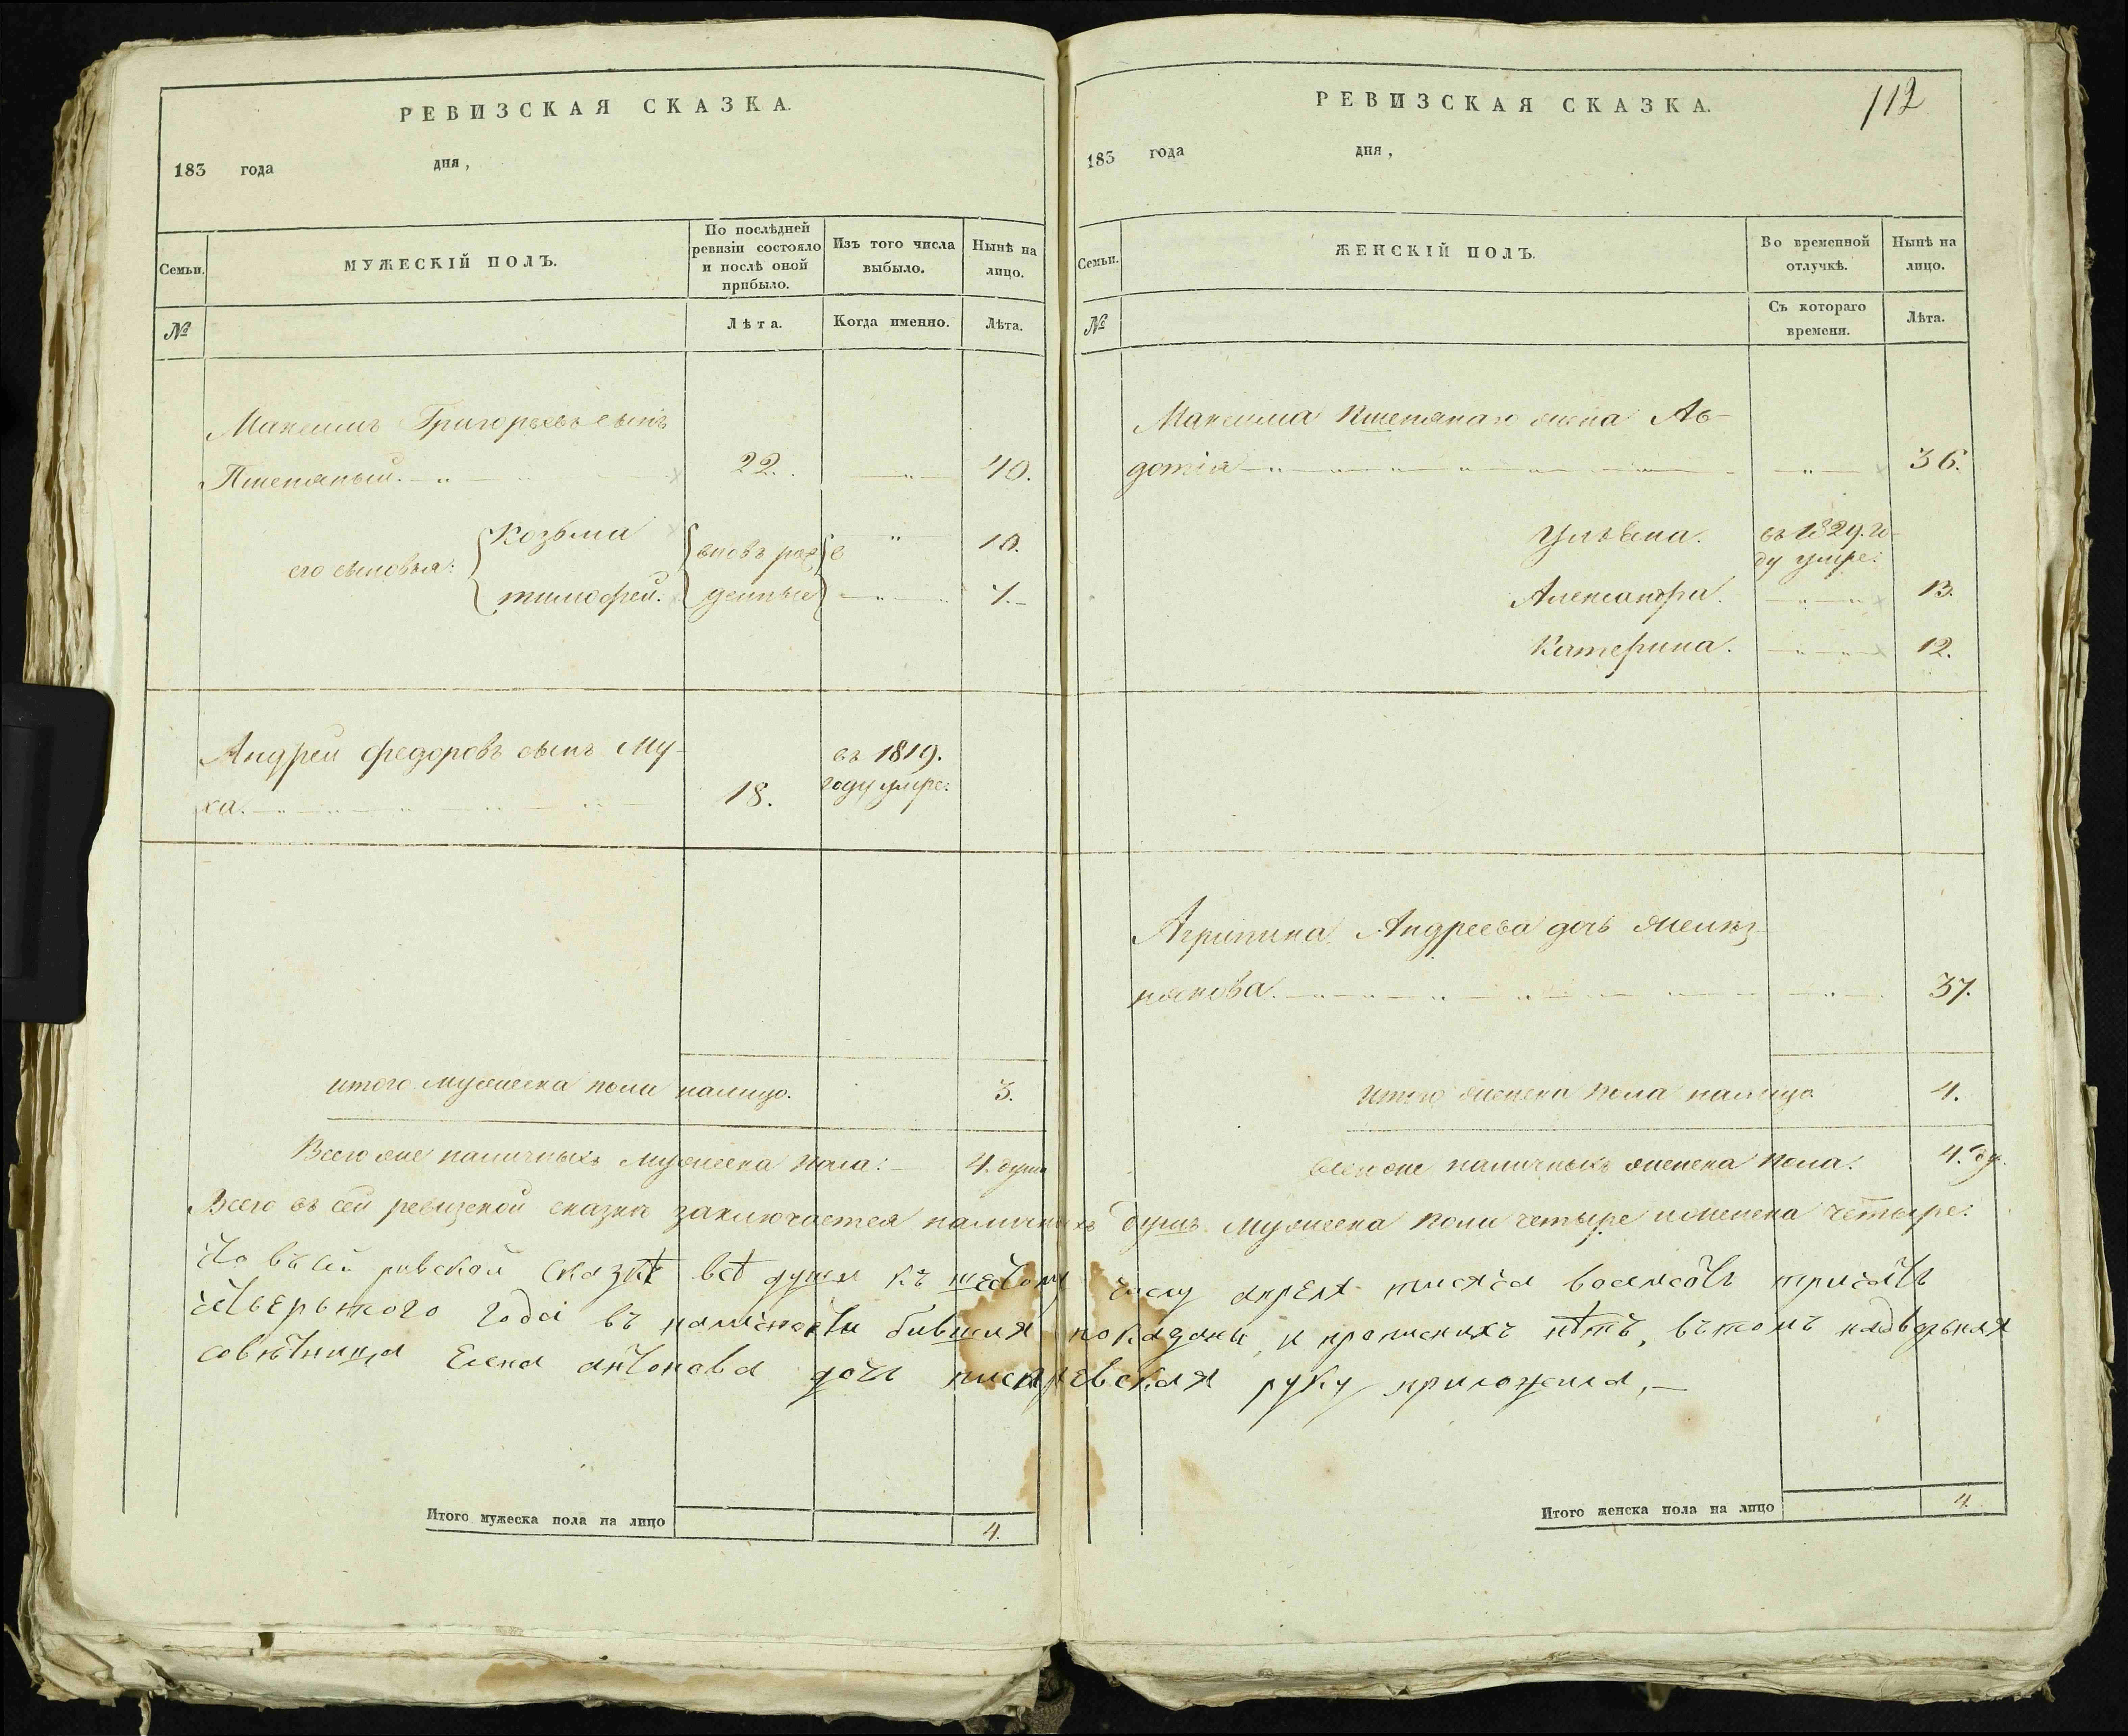 РЕВИЗСКАЯ СКАЗКА.
183 года дня,
Семьи. МУЖЕСКІЙ ПОЛЪ. По послѣдней ревизіи состояло и послѣ оной прибыло. Изъ того числа выбыло. Нынѣ на лицо.
№ Лѣта. Когда именно. Лѣта.
Максимъ Григорьевъ сынъ
Пшеняный. 22. 40.
его сыновья: Козьма вновь рож 10.
тимофей. денныя 7.
Андрей федоровъ сынъ Му-
ха. 18. въ 1819. году умре:
итого мужеска пола налицо. 3.
Всего же наличныхъ мужеска пола: 4. души
РЕВИЗСКАЯ СКАЗКА. 112
183 года дня,
Семьи. ЖЕНСКІЙ ПОЛЪ. Во временной отлучкѣ. Нынѣ на лицо.
№ Съ котораго времени. Лѣта.
Максима Пшенянаго жена Ав-
дотіа 36.
Ульяна. въ 1829. го-
ду умре:
Александра. 13.
Катерина. 12.
Агрипина Андреева дочь
някова. 37.
итого женска пола налицо. 4.
всего же наличныхъ женска пола: 4. ду.
Всего въ сей ревизской сказкѣ заключается наличныхъ душъ мужеска пола четыре и женска четыре:
Что въ сей ривской сказкѣ всѣ души къ шестому числу апреля тисяча восемсотъ тридсать
четвертого года въ наличности бывшия показаны, и прописнихъ нѣтъ, вътомъ надворьная
совѣтница Елена антонова дочь руку приложила,—
Итого мужеска пола на лицо 4.
Итого женска пола на лицо 4.